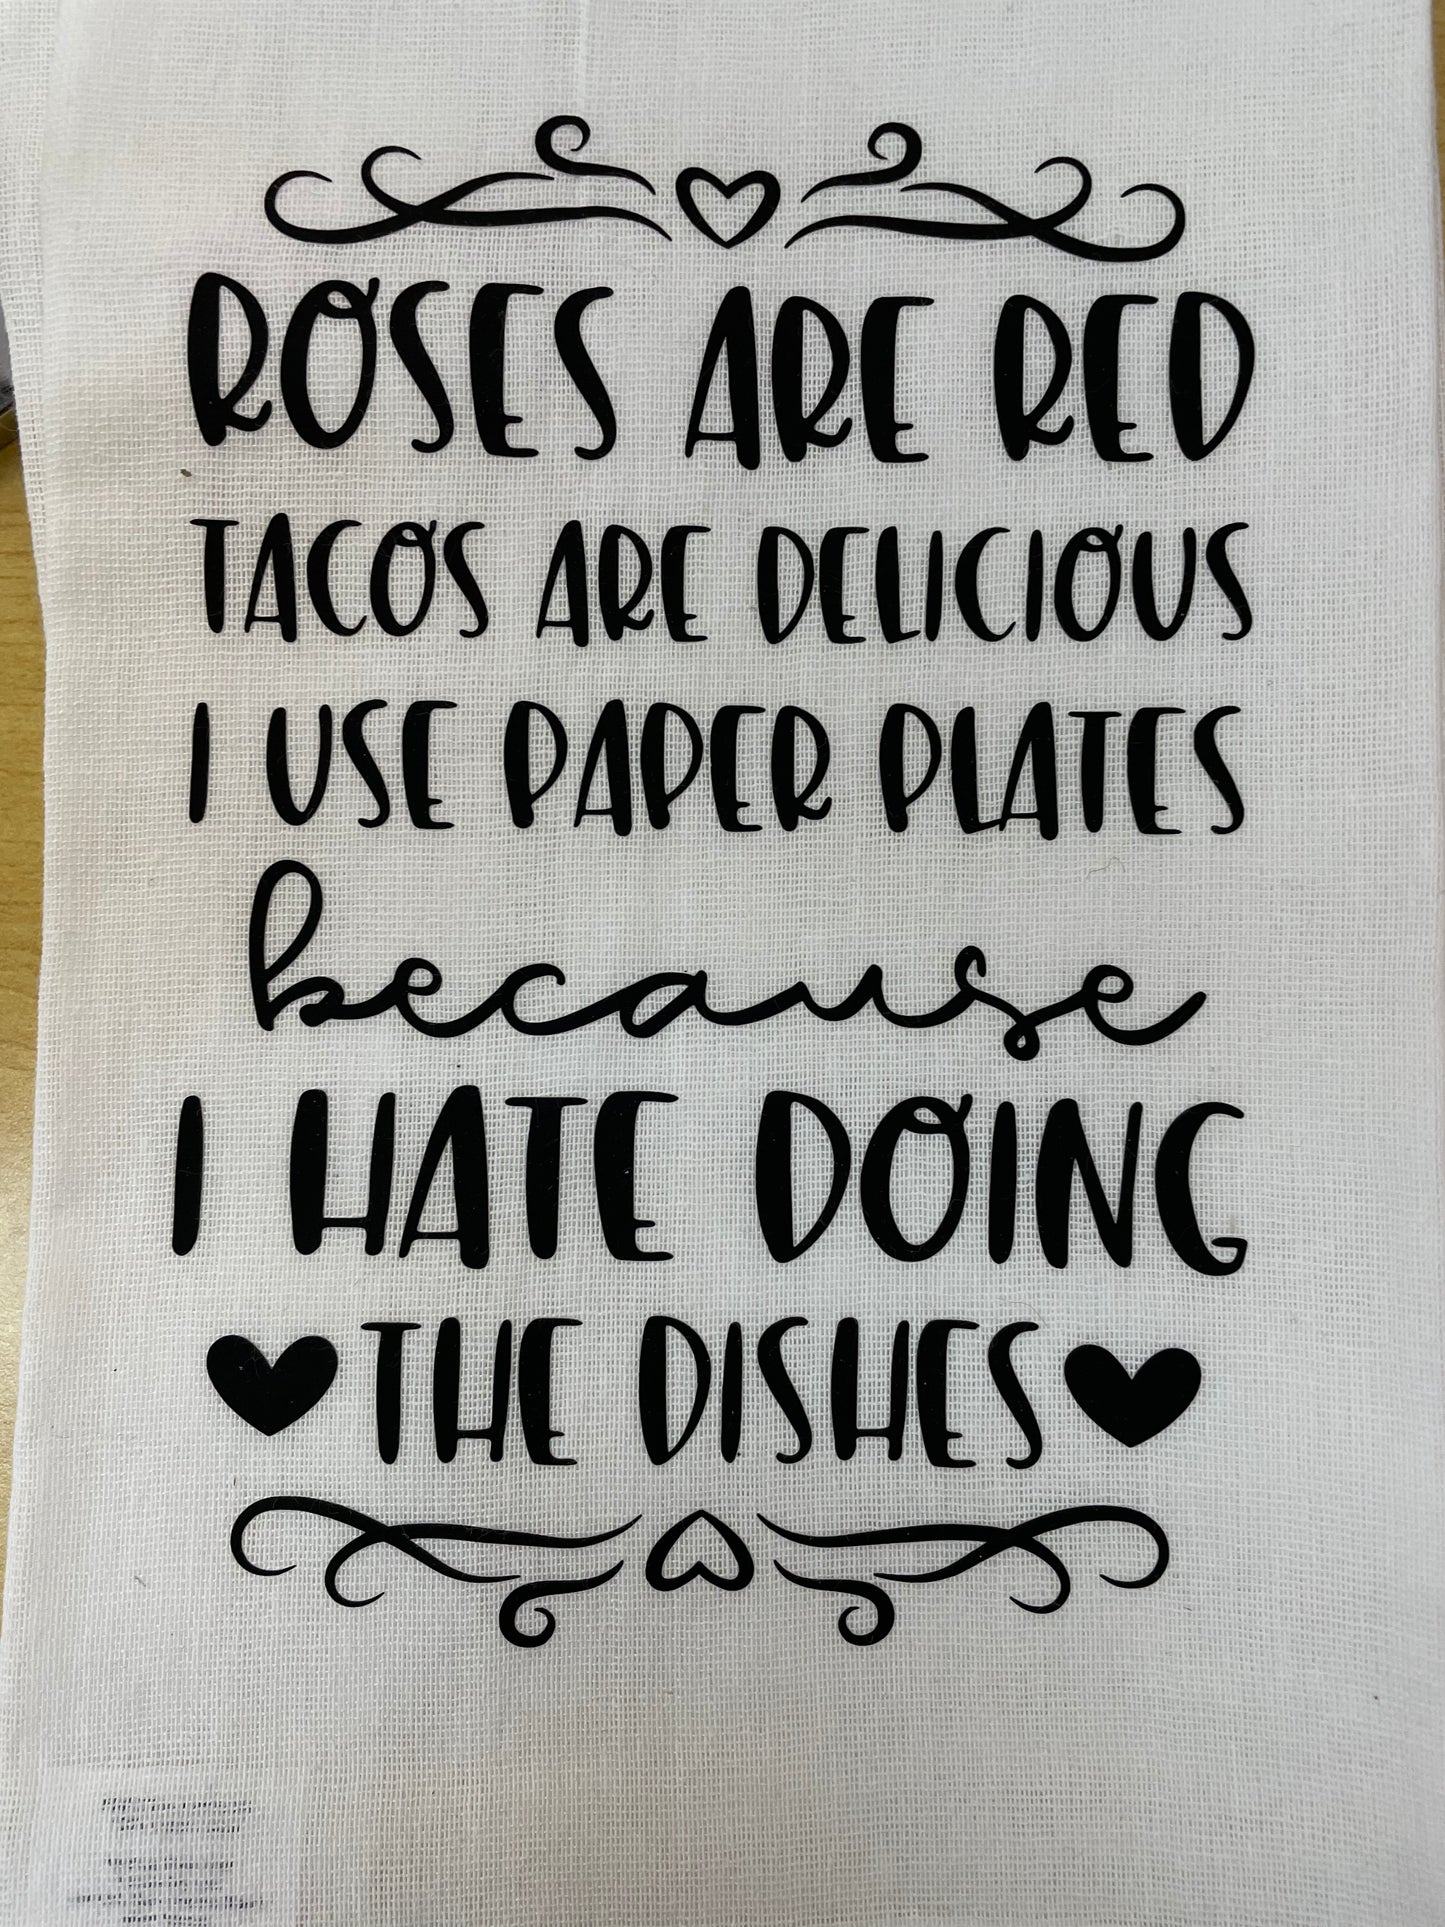 ROSES ARE RED
TACOS ARE DELICIOUS
I USE PAPER PLATES
because
I HATE DOING
THE DISHES